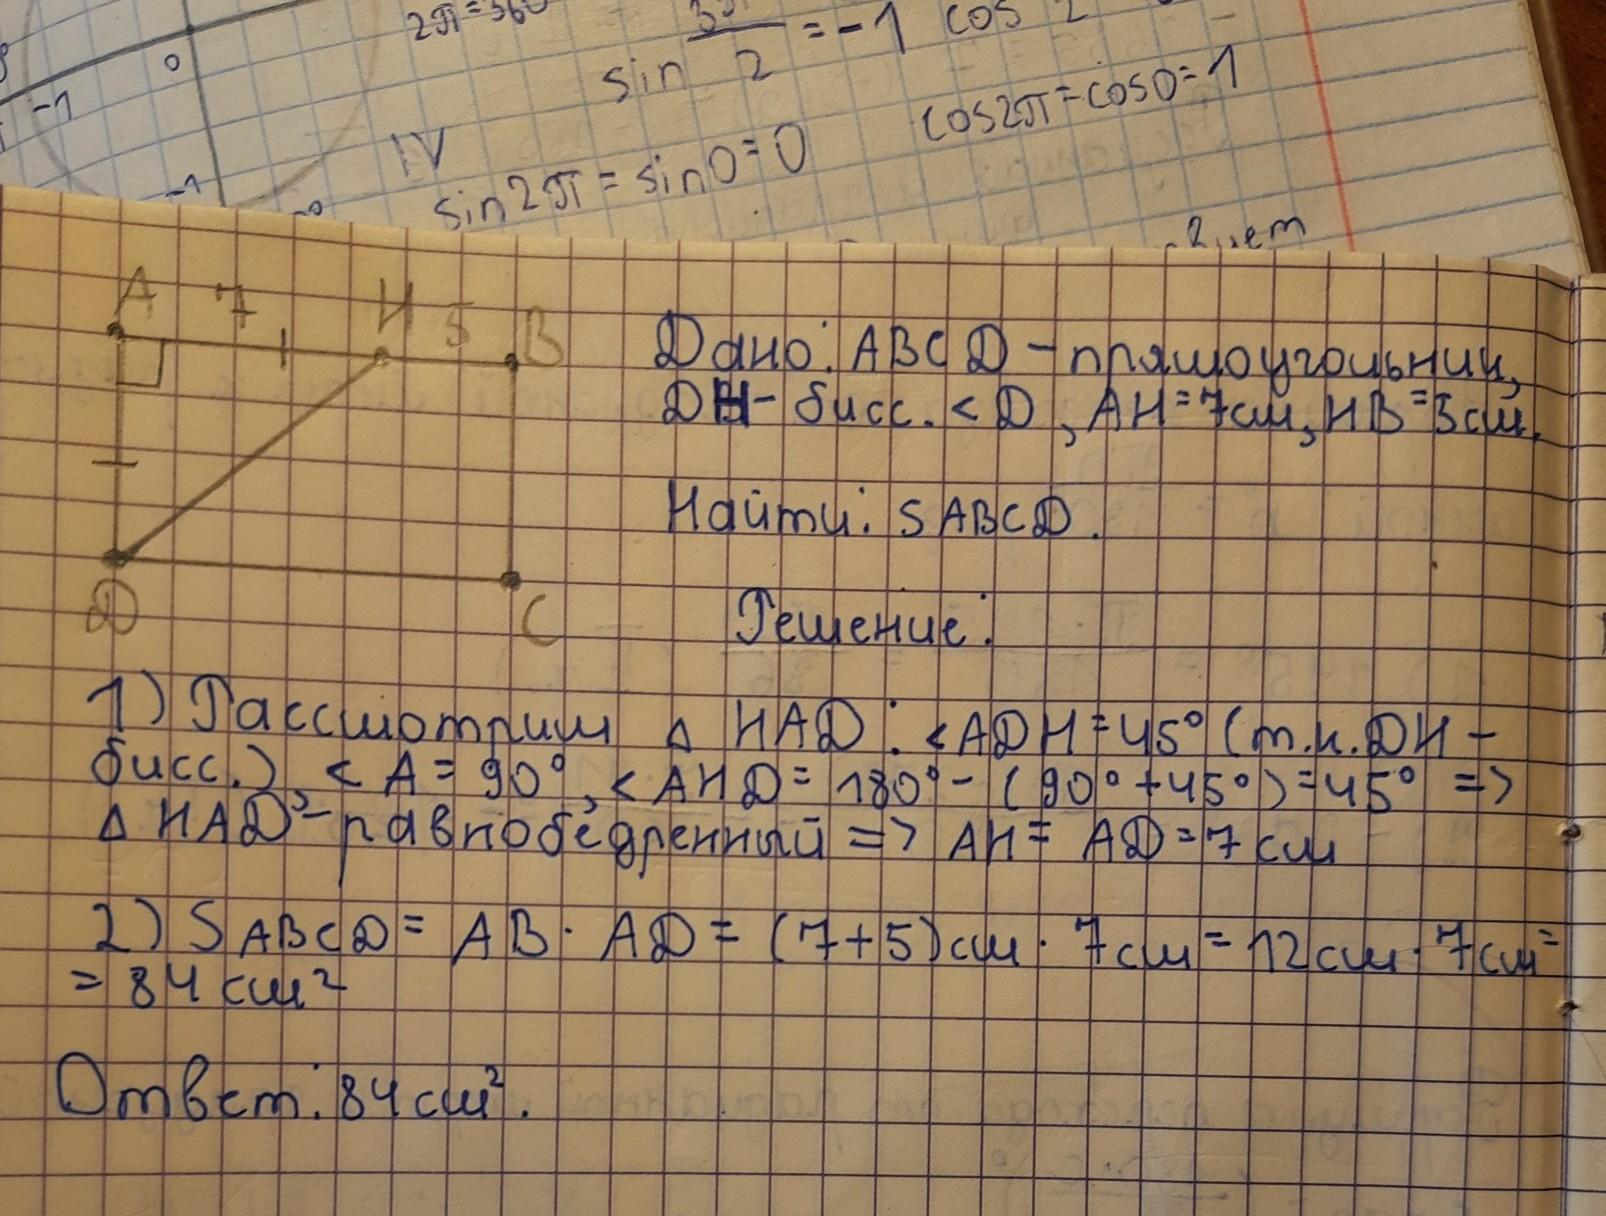 2π=360
sin 3π/2 = -1 cos
0
-1
IV
cos2π=cos0=1
sin2π=sin0=0
-1
A 7 H 5 B
Дано: ABCD - прямоугольник,
DH - бисс. <D, AH=7см, HB=5см.
Найти: SABCD.
D C
Решение:
1) Рассмотрим △ HAD: <ADH=45° (т.к. DH -
бисс.), <A=90°, <AHD=180°-(90°+45°)=45° =>
△ HAD - равнобедренный => AH= AD=7 см
2) SABCD= AB· AD= (7+5)см· 7см=12см·7см=
= 84 см²
Ответ: 84 см².